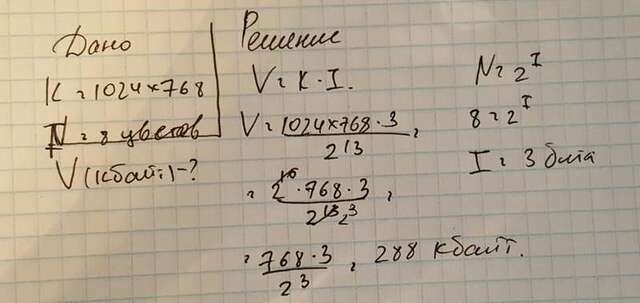 Дано
K = 1024 × 768
N = 8 цветов
V (кбайт) - ?
Решение
V = K · I.
V = 1024 × 768 · 3 / 2^13 =
= 2^10 · 768 · 3 / 2^13 2^3 =
= 768 · 3 / 2^3 = 288 кбайт.
N = 2^I
8 = 2^I
I = 3 бита